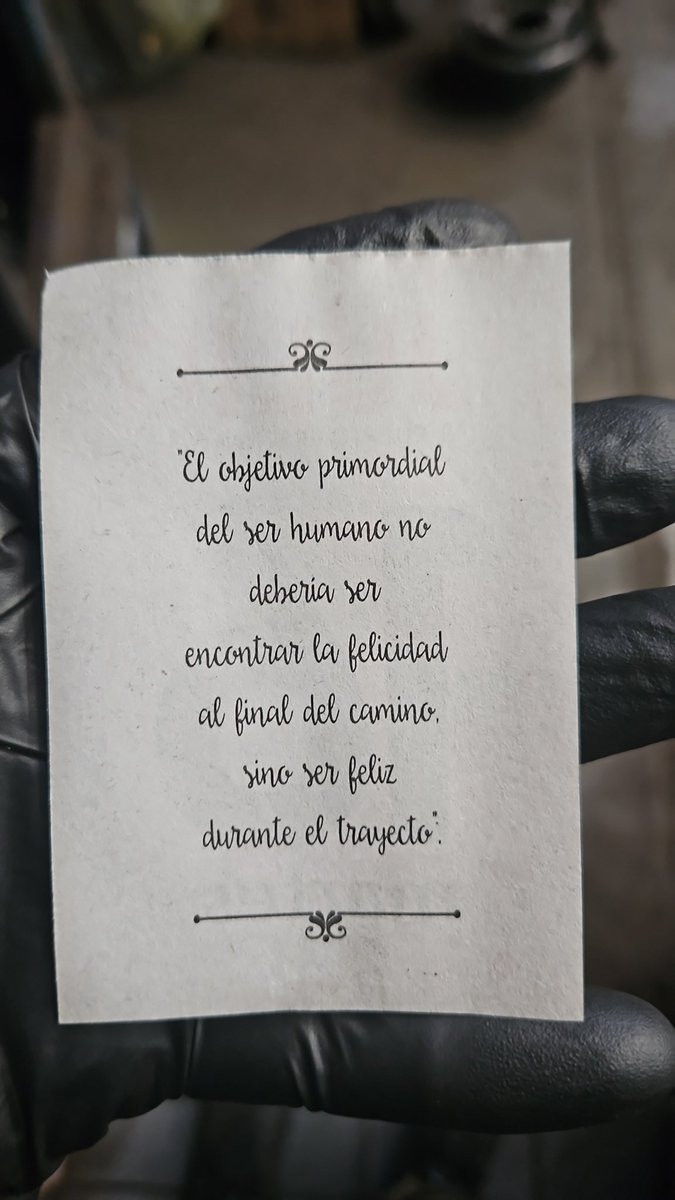 "El objetivo primordial
del ser humano no
debería ser
encontrar la felicidad
al final del camino,
sino ser feliz
durante el trayecto".